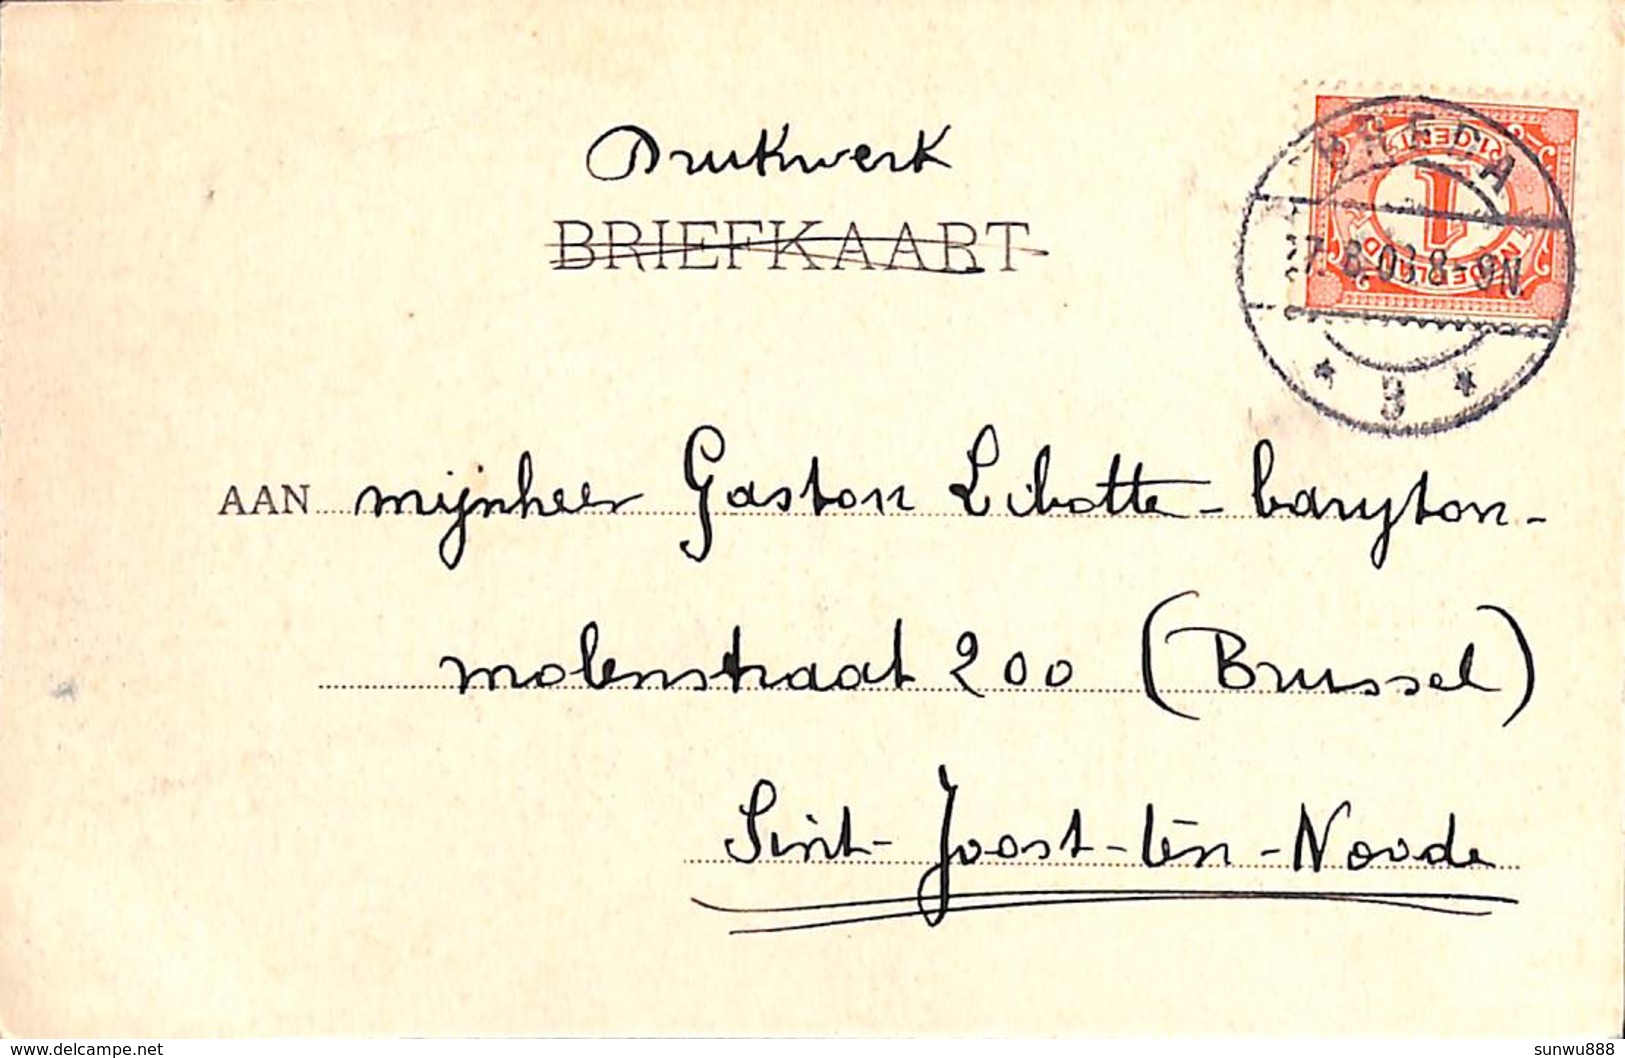 Drukwerk
BRIEFKAART
BREDA
1 CENT
1
NEDERLAND
27.8.03.8-9N.
* 3 *
AAN mijnheer Gaston Libotte - baryton -
molenstraat 200 (Brussel)
Sint-Joost-ten-Noode
www.delcampe.net
sunwu888